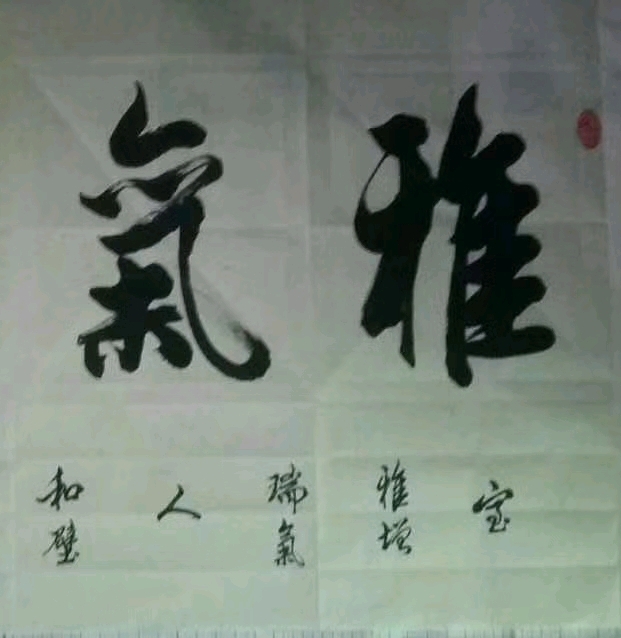 雅氣
室
雅增
瑞氣
人
和璧